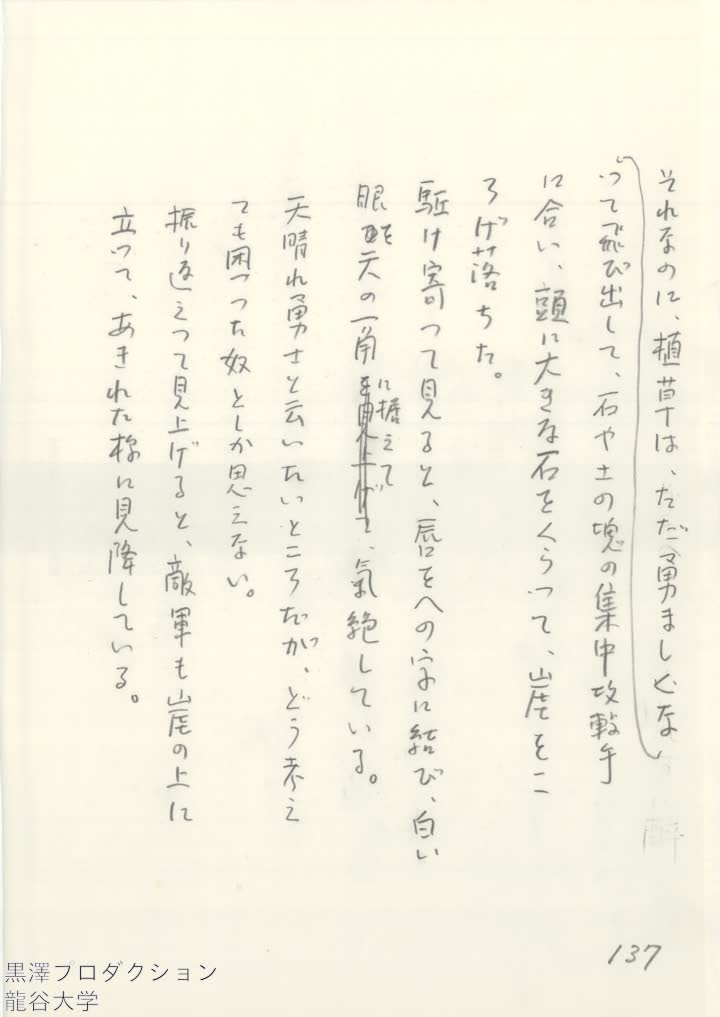 それなのに、植草は、ただ勇ましくな
って飛び出して、石や土の塊の集中攻撃
に合い、頭に大きな石をくらって、崖をこ
ろげ落ちた。
駈け寄って見ると、唇をへの字に結び、白い
眼を天の一角に据えて、氣絶している。
天晴れ勇士と云いたいところだが、どう考え
ても困つた奴としか思えない。
振り返えって見上げると、敵軍も崖の上に
立って、あきれた様に見降している。
137
黒澤プロダクション
龍谷大学